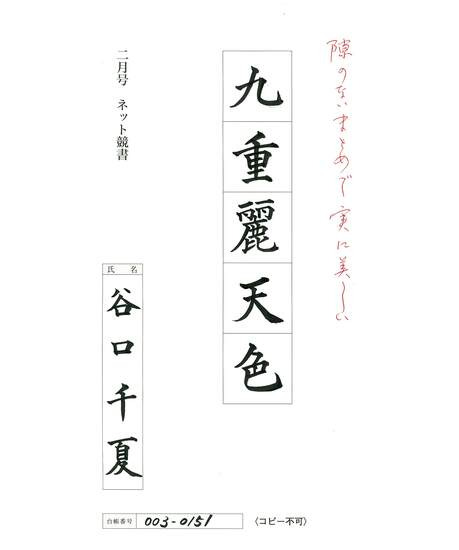 隙のないまとめで実に美しい
九重麗天色
二月号 ネット競書
氏名
谷口千夏
台帳番号 003-0151
〈コピー不可〉